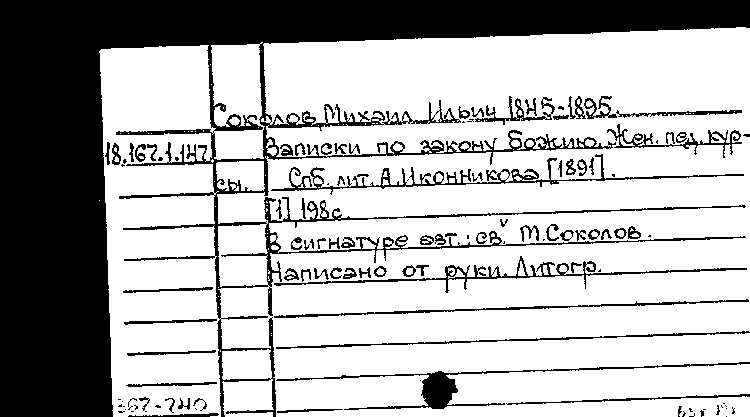 Соколов, Михаил Ильич, 1845-1895.
18.167.1.147 Записки по закону божию. Жен. пед. кур-
сы. Спб., лит. А. Иконникова, [1891].
[1], 198 с.
В сигнатуре авт.: св. М. Соколов.
Написано от руки. Литогр.
367-740